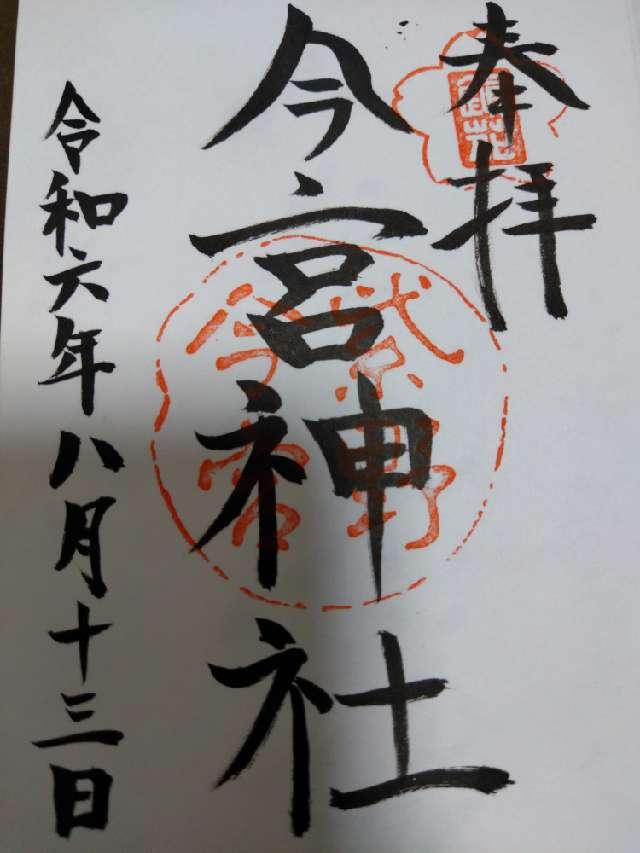 奉拝
今宮神社
紫野
今宮
令和六年八月十三日